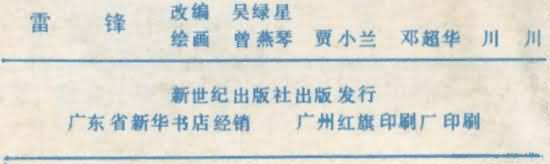 雷锋
改编 吴绿星
绘画 曾燕琴 贾小兰 邓超华 川川
新世纪出版社出版发行
广东省新华书店经销 广州红旗印刷厂印刷